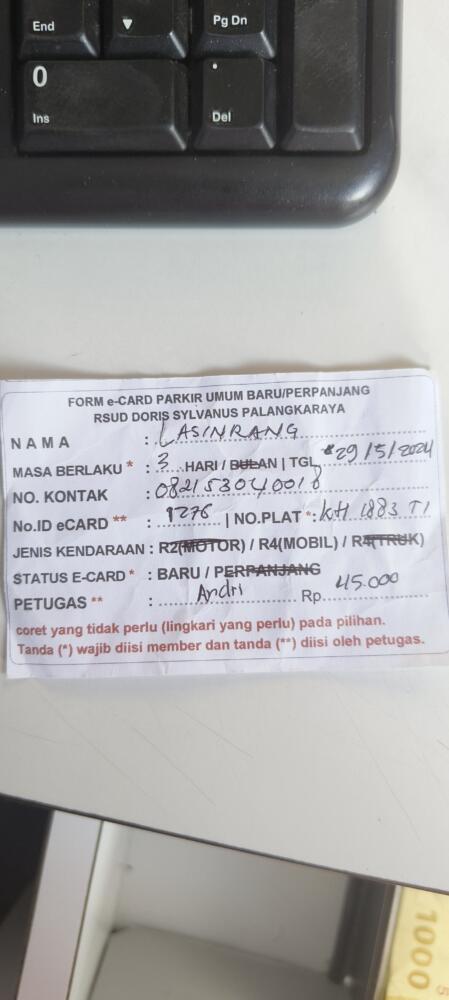 End
Pg Dn
0
Ins
.
Del
FORM e-CARD PARKIR UMUM BARU/PERPANJANG
RSUD DORIS SYLVANUS PALANGKARAYA
NAMA : LASINRANG
MASA BERLAKU * : 3 HARI / BULAN | TGL 29/5/2024
NO. KONTAK : 082153040018
No.ID eCARD ** : 1276 | NO.PLAT * : KH 1883 TI
JENIS KENDARAAN : R2(MOTOR) / R4(MOBIL) / R4(TRUK)
STATUS E-CARD * : BARU / PERPANJANG
PETUGAS ** : Andri Rp. 45.000
coret yang tidak perlu (lingkari yang perlu) pada pilihan.
Tanda (*) wajib diisi member dan tanda (**) diisi oleh petugas.
1000